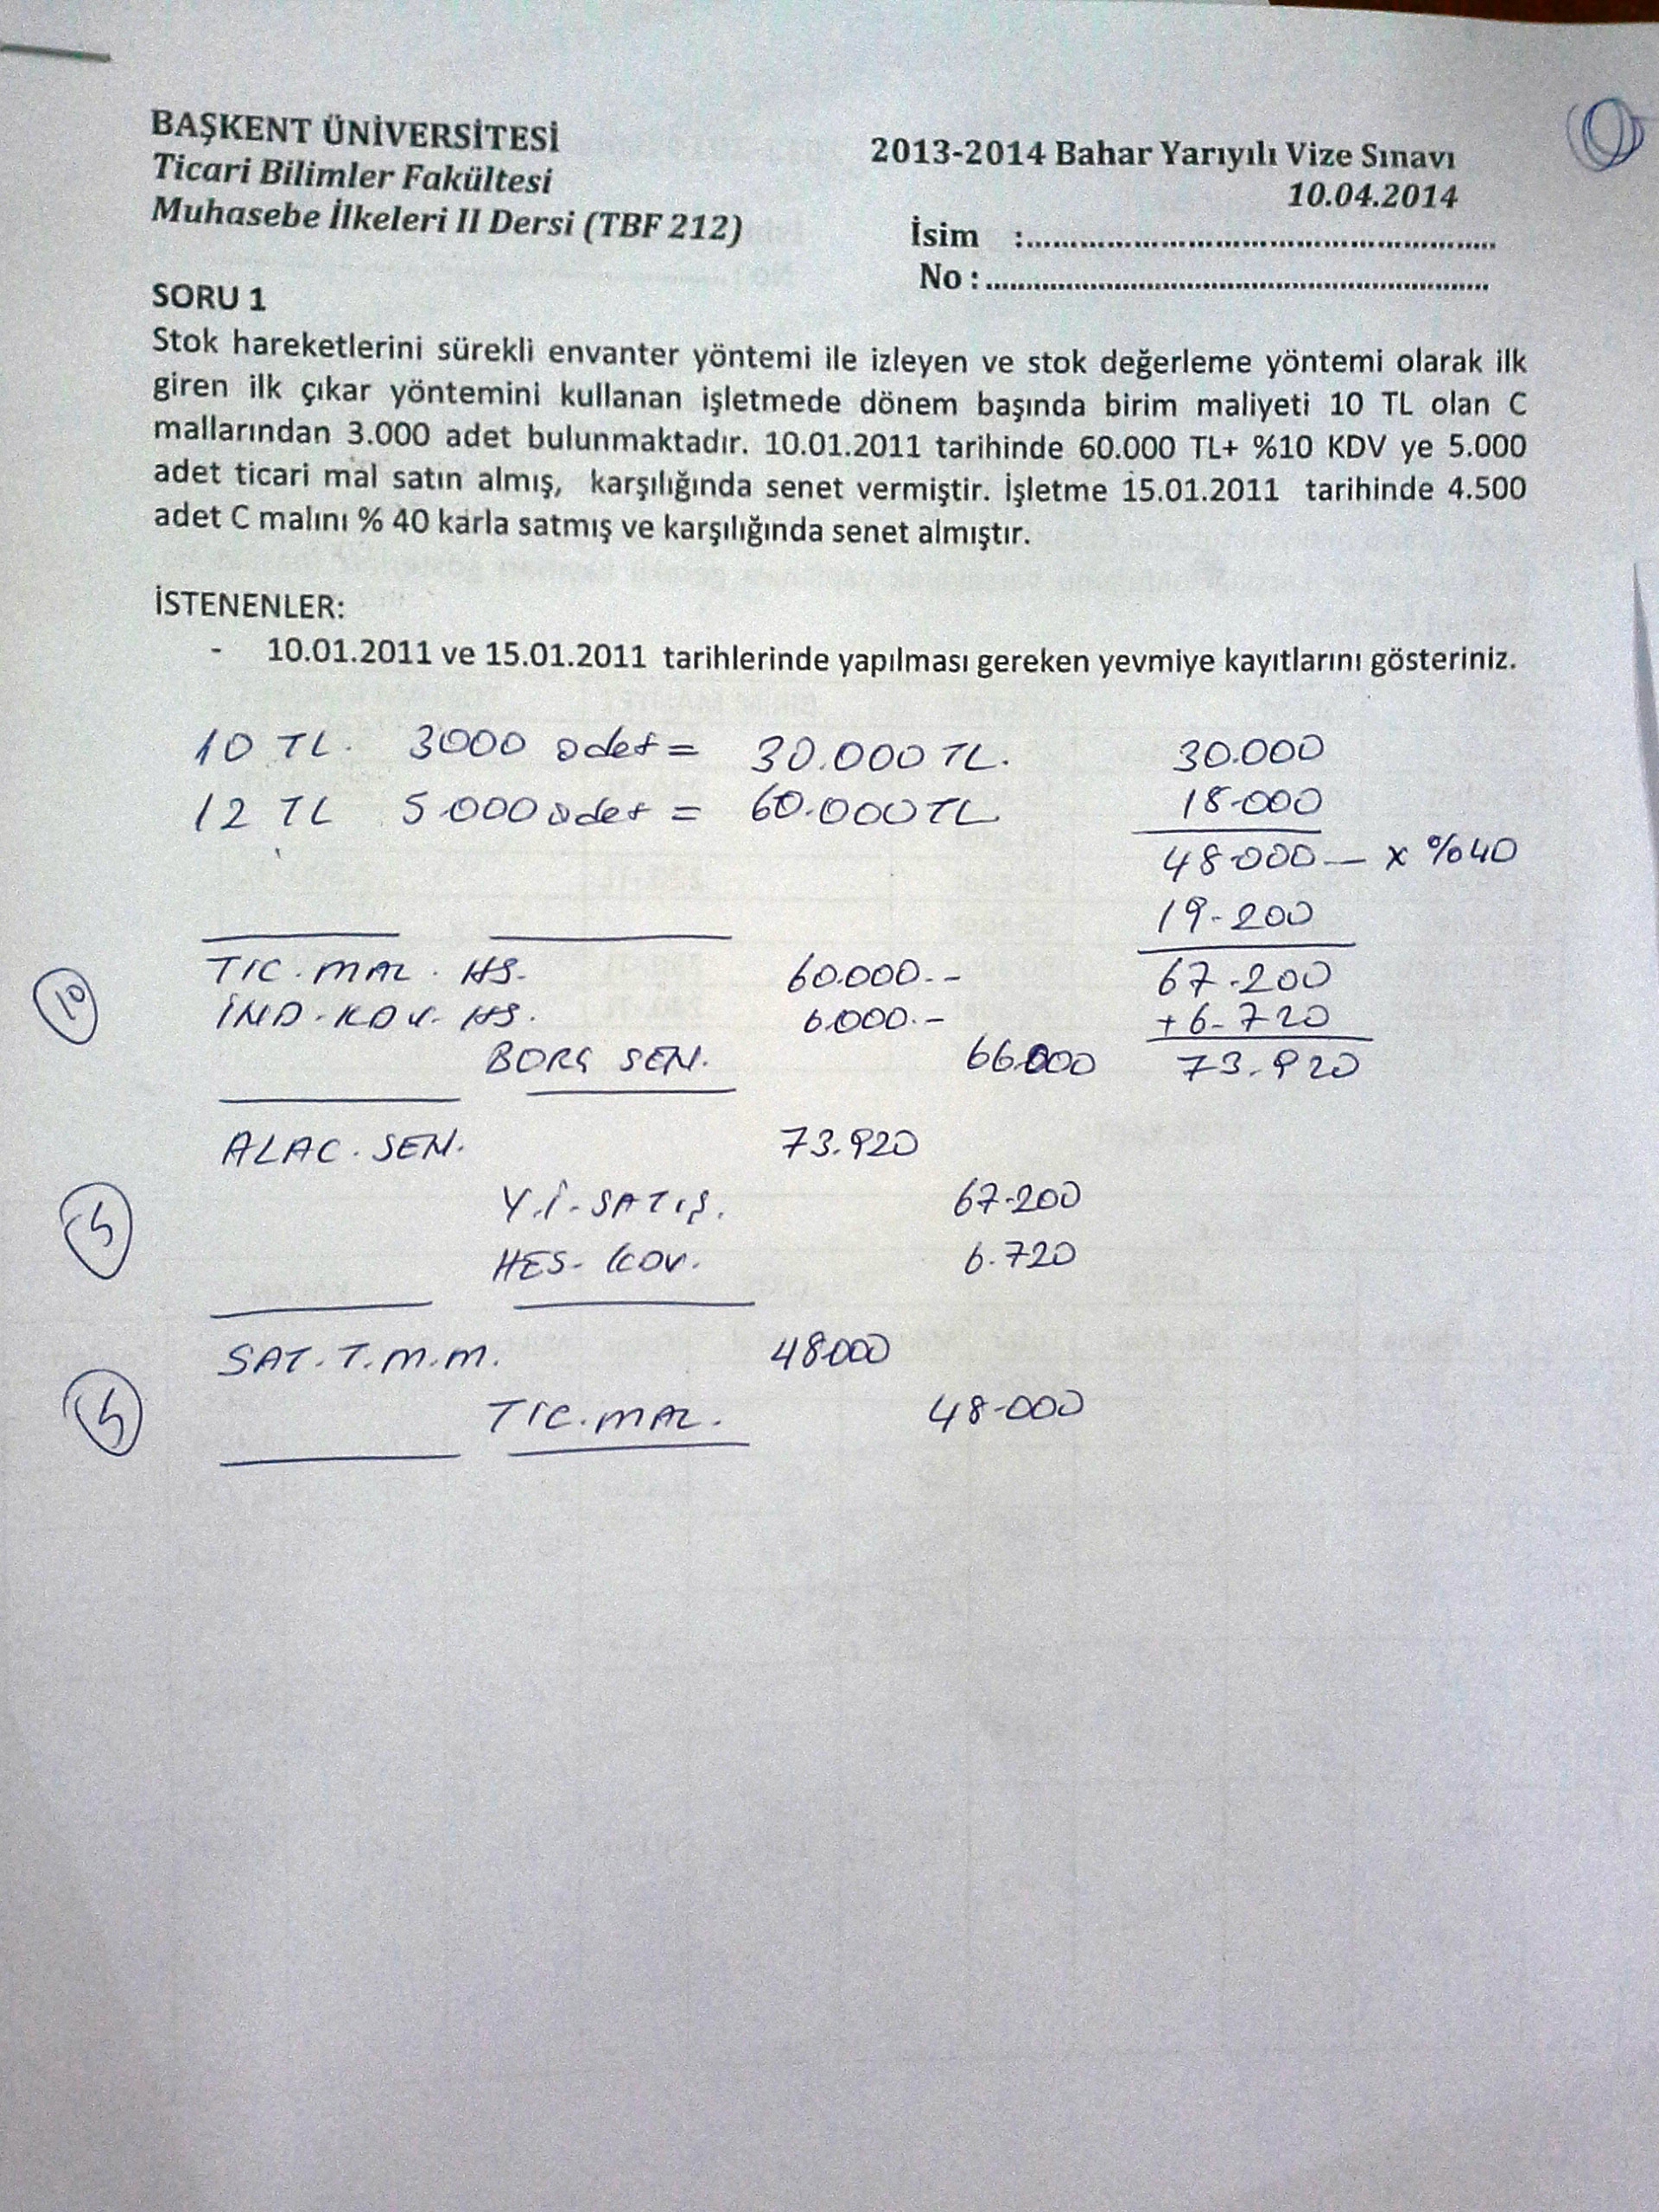 BAŞKENT ÜNİVERSİTESİ
Ticari Bilimler Fakültesi
Muhasebe İlkeleri II Dersi (TBF 212)
2013-2014 Bahar Yarıyılı Vize Sınavı
10.04.2014
İsim :....................................................
No :........................................................
SORU 1
Stok hareketlerini sürekli envanter yöntemi ile izleyen ve stok değerleme yöntemi olarak ilk
giren ilk çıkar yöntemini kullanan işletmede dönem başında birim maliyeti 10 TL olan C
mallarından 3.000 adet bulunmaktadır. 10.01.2011 tarihinde 60.000 TL+ %10 KDV ye 5.000
adet ticari mal satın almış, karşılığında senet vermiştir. İşletme 15.01.2011 tarihinde 4.500
adet C malını % 40 karla satmış ve karşılığında senet almıştır.
İSTENENLER:
- 10.01.2011 ve 15.01.2011 tarihlerinde yapılması gereken yevmiye kayıtlarını gösteriniz.
10 TL. 3000 adet = 30.000 TL. 30.000
12 TL 5.000 adet = 60.000 TL 18.000
48.000 — x %40
19.200
TİC. MAL. HS. 60.000.- 67.200
10 İND. KDV. HS. 6.000.- +6.720
BORÇ SEN. 66.000 73.920
ALAC. SEN. 73.920
5 Y.İ. SATIŞ. 67.200
HES. KDV. 6.720
SAT. T.M.M. 48000
5 TİC. MAL. 48.000